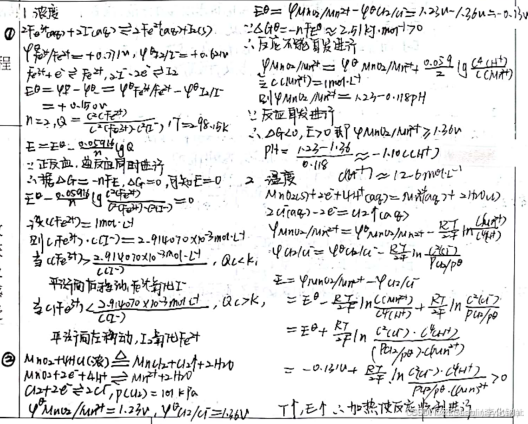 程
1 浓度
① 2Fe³⁺(aq)+2I⁻(aq)⇌2Fe²⁺(aq)+I₂(s)
φᶿFe³⁺/Fe²⁺=+0.771V, φᶿI₂/I⁻=+0.621V
Fe³⁺+e⁻⇌Fe²⁺, 2I⁻-2e⁻⇌I₂
Eᶿ=φᶿ-φᶿ=φᶿFe³⁺/Fe²⁺-φᶿI₂/I⁻
=+0.150V
n=2, Q=c²(Fe²⁺)/c²(Fe³⁺)·c²(I⁻), T=298.15K
E=Eᶿ-0.05916/n lgQ
∵正反应、逆反应同时进行
∴据△G=-nFE, △G=0, 可知E=0
Eᶿ-0.05916/n lg c²(Fe²⁺)/c²(Fe³⁺)·c²(I⁻)=0
设c(Fe²⁺)=1mol·L⁻¹
则c(Fe³⁺)·c(I⁻)=2.914070×10⁻³mol·L⁻¹
当c(Fe³⁺)>2.914070×10⁻³mol·L⁻¹/c(I⁻), Qc<K,
平衡向右移动,Fe³⁺氧化I⁻
当c(Fe³⁺)<2.914070×10⁻³mol·L⁻¹/c(I⁻), Qc>K,
平衡向左移动, I₂氧化Fe²⁺
③ MnO₂+4HCl(浓)≜MnCl₂+Cl₂↑+2H₂O
MnO₂+2e⁻+4H⁺⇌Mn²⁺+2H₂O
Cl₂+2e⁻⇌2Cl⁻, p(Cl₂)=101kPa
φᶿMnO₂/Mn²⁺=1.23V, φᶿCl₂/Cl⁻=1.36V
Eᶿ=φᶿMnO₂/Mn²⁺-φᶿCl₂/Cl⁻=1.23V-1.36V=-0.13V
∵△Gᶿ=-nFEᶿ≈2.51kJ·mol⁻¹>0
∴反应不能自发进行
φMnO₂/Mn²⁺=φᶿMnO₂/Mn²⁺+0.059/2 lg c⁴(H⁺)/c(Mn²⁺)
当c(Mn²⁺)=1mol·L⁻¹
则φMnO₂/Mn²⁺=1.23-0.118pH
∵反应自发进行
∴△G<0, E>0 即φMnO₂/Mn²⁺≥1.36V
pH=1.23-1.36/0.118≈-1.10
c(H⁺)≈12.6mol·L⁻¹
2 温度
MnO₂(s)+2e⁻+4H⁺(aq)=Mn²⁺(aq)+2H₂O(l)
2Cl⁻(aq)-2e⁻=Cl₂↑(aq)
φMnO₂/Mn²⁺=φᶿMnO₂/Mn²⁺-RT/2F ln c(Mn²⁺)/c⁴(H⁺)
φCl₂/Cl⁻=φᶿCl₂/Cl⁻-RT/2F ln c²(Cl⁻)/pCl₂/pθ
E=φMnO₂/Mn²⁺-φCl₂/Cl⁻
=Eᶿ-RT/2F ln c(Mn²⁺)/c⁴(H⁺)+RT/2F ln c²(Cl⁻)/pCl₂/pθ
=Eᶿ+RT/2F ln c²(Cl⁻)·c⁴(H⁺)/(pCl₂/pθ)·c(Mn²⁺)
=-0.131V+RT/2F ln c²(Cl⁻)·c⁴(H⁺)/pCl₂/pθ·c(Mn²⁺)>0
T↑, E↑ ∴加热使反应